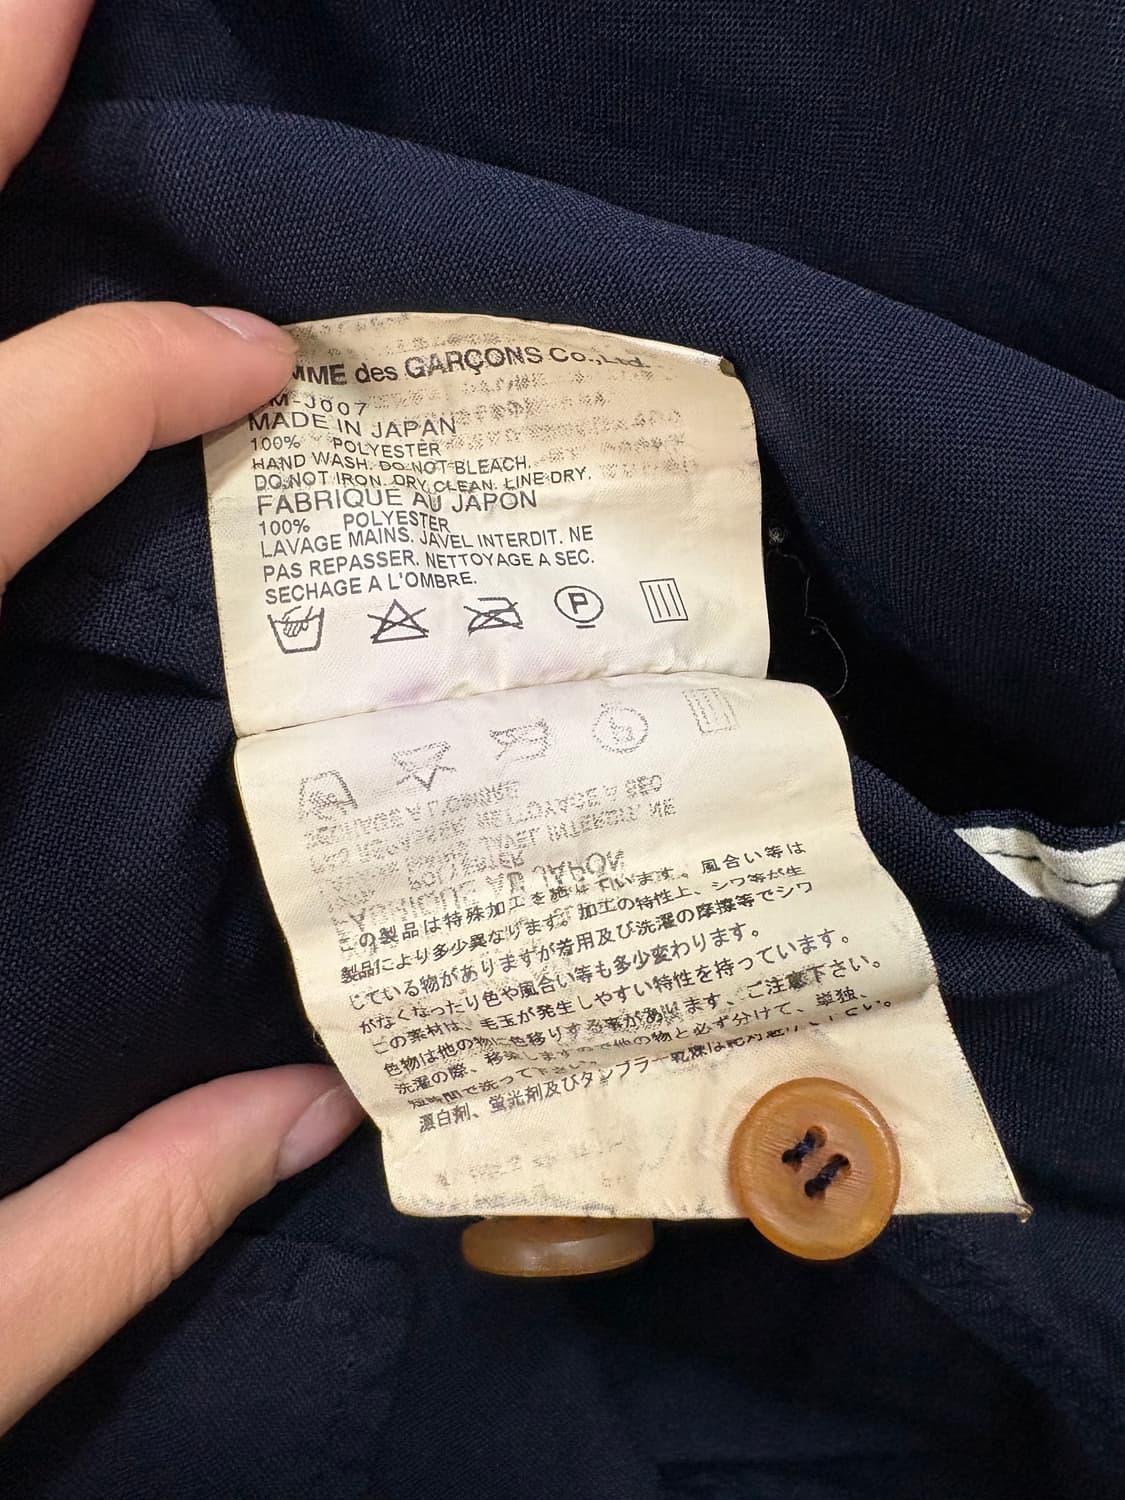 MME des GARÇONS Co.,Ltd.
M-J007
MADE IN JAPAN
100% POLYESTER
HAND WASH. DO NOT BLEACH.
DO NOT IRON. DRY CLEAN. LINE DRY.
FABRIQUE AU JAPON
100% POLYESTER
LAVAGE MAINS. JAVEL INTERDIT. NE
PAS REPASSER. NETTOYAGE A SEC.
SECHAGE A L'OMBRE.
P
の製品は特殊加工を施 います。風合い等は
製品により多少異なります。加工の特性上、シワ等が生
じている物がありますが着用及び洗濯の摩擦等でシワ
がなくなったり色や風合い等も多少変わります。
この素材は、毛玉が発生しやすい特性を持っています。
色物は他の物に色移りする事があります、ご注意下さい。
洗濯の際、移染しますので他の物と必ず分けて、単独、
短時間で洗って下さい。
漂白剤、蛍光剤及びタンブラー乾燥は絶対避けて下さい。